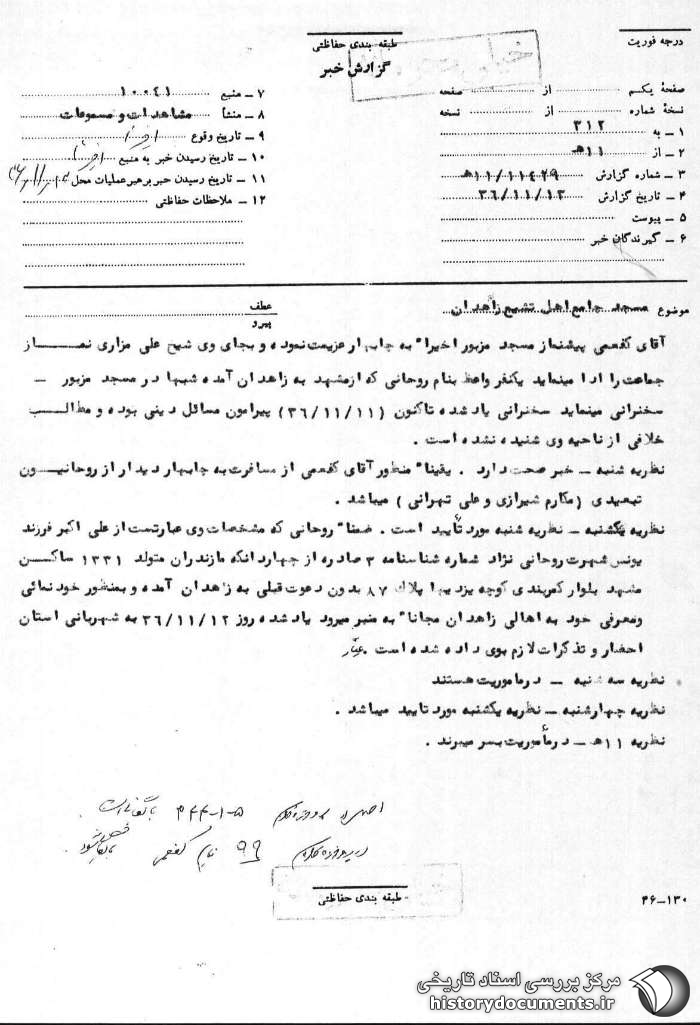 درجه فوریت
طبقه بندی حفاظتی
گزارش خبر
صفحهٔ یکم از صفحه
نسخهٔ شماره از نسخه
۱ ــ به ۳۱۲
۲ ــ از ۱۱هـ
۳ ــ شماره گزارش ۱۱/۱۱۴۲۹هـ
۴ ــ تاریخ گزارش ۳۶/۱۱/۱۲
۵ ــ پیوست
۶ ــ گیرندگان خبر
۷ ــ منبع ۱۰۰۴۱
۸ ــ منشأ مشاهدات و مسموعات
۹ ــ تاریخ وقوع اخیراً
۱۰ ــ تاریخ رسیدن خبر به منبع اخیراً
۱۱ ــ تاریخ رسیدن خبر برهبر عملیات محل
۱۲ ــ ملاحظات حفاظتی
موضوع مسجد جامع اهل تشیع زاهدان
عطف
پیرو
آقای کفعمی پیشنماز مسجد مزبور اخیرا" به چابهار عزیمت نموده و بجای وی شیخ علی مزاری نمــاز
جماعت را ادا مینماید یکنفر واعظ بنام روحانی که از مشهد به زاهدان آمده شبها در مسجد مزبور ــ
سخنرانی مینماید سخنرانی یاد شده تاکنون (۳۶/۱۱/۱۱) پیرامون مسائل دینی بوده و مطالــب
خلافی از ناحیه وی شنیده نشده است .
نظریه شنبه ــ خبر صحت دارد . یقینا" منظور آقای کفعمی از مسافرت به چابهار دیدار از روحانیــون
تبعیدی (مکارم شیرازی و علی تهرانی) میباشد .
نظریه یکشنبه ــ نظریه شنبه مورد تأیید است . ضمنا" روحانی که مشخصات وی عبارتست از علی اکبر فرزند
یونس شهرت روحانی نژاد شماره شناسنامه ۳ صادره از چهاردانکه مازندران متولد ۱۳۳۱ ساکــن
مشهد بلوار کمربندی کوچه یزدیها پلاک ۸۷ بدون دعوت قبلی به زاهدان آمده و بمنظور خودنمائی
ومعرفی خود به اهالی زاهدان مجانا" به منبر میرود یاد شده روز ۳۶/۱۱/۱۲ به شهربانی استان
احضار و تذکرات لازم بوی داده شده است .
نظریه سه شنبه ــ درماموریت هستند
نظریه چهارشنبه ــ نظریه یکشنبه مورد تایید میباشد .
نظریه ۱۱هـ ــ درمأموریت بسر میبرند .
طبقه بندی حفاظتی
۴۶ــ۱۳۰
مرکز بررسی اسناد تاریخی
historydocuments.ir